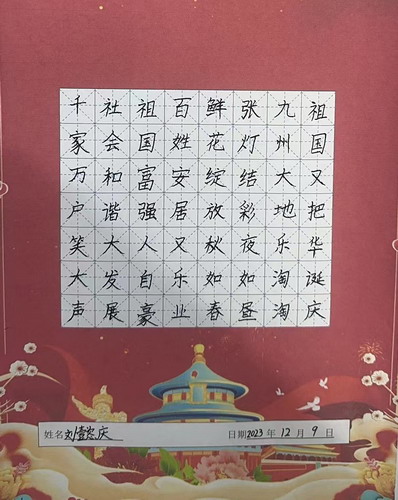 祖国又把华诞庆
九州大地乐淘淘
张灯结彩夜如昼
鲜花绽放秋如春
百姓安居又乐业
祖国富强人自豪
社会和谐大发展
千家万户笑大声
姓名 刘 庆 日期 2023 年 12 月 9 日